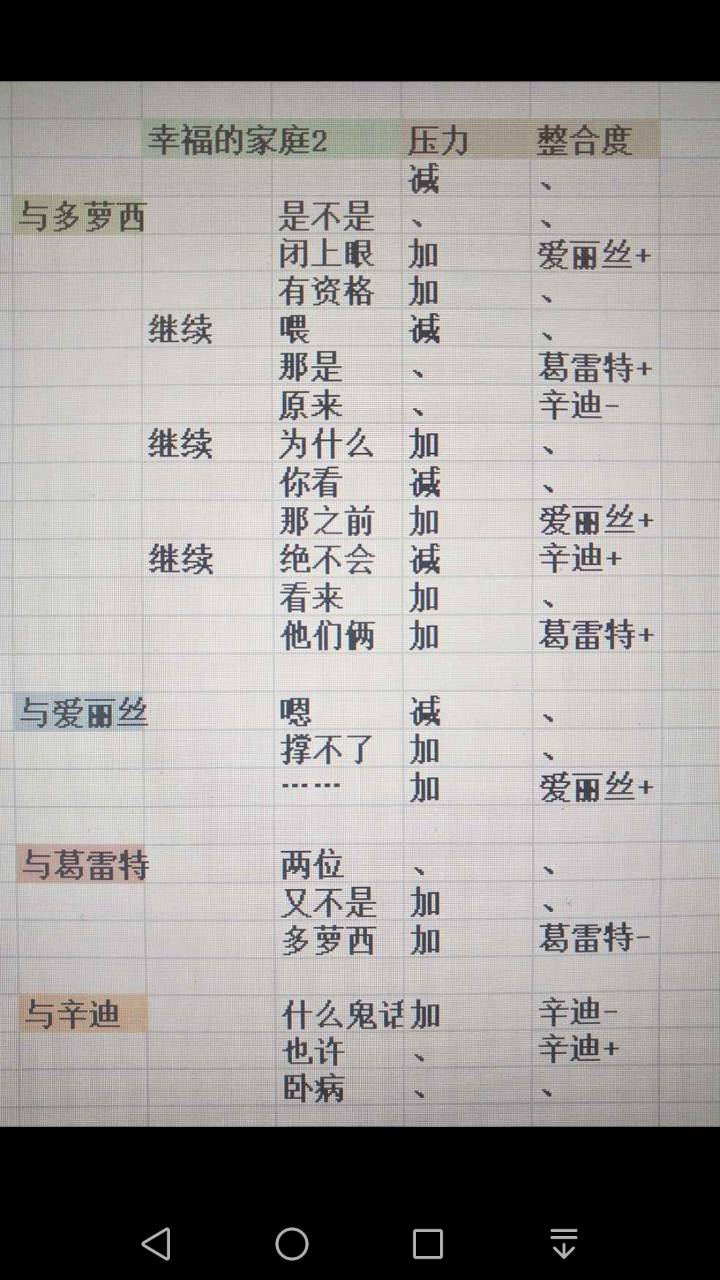 幸福的家庭2 压力 整合度
减 、
与多萝西 是不是 、 、
闭上眼 加 爱丽丝+
有资格 加 、
继续 喂 减 、
那是 、 葛雷特+
原来 、 辛迪-
继续 为什么 加 、
你看 减 、
那之前 加 爱丽丝+
继续 绝不会 减 辛迪+
看来 加 、
他们俩 加 葛雷特+
与爱丽丝 嗯 减 、
撑不了 加 、
…… 加 爱丽丝+
与葛雷特 两位 、 、
又不是 加 、
多萝西 加 葛雷特-
与辛迪 什么鬼话 加 辛迪-
也许 、 辛迪+
卧病 、 、